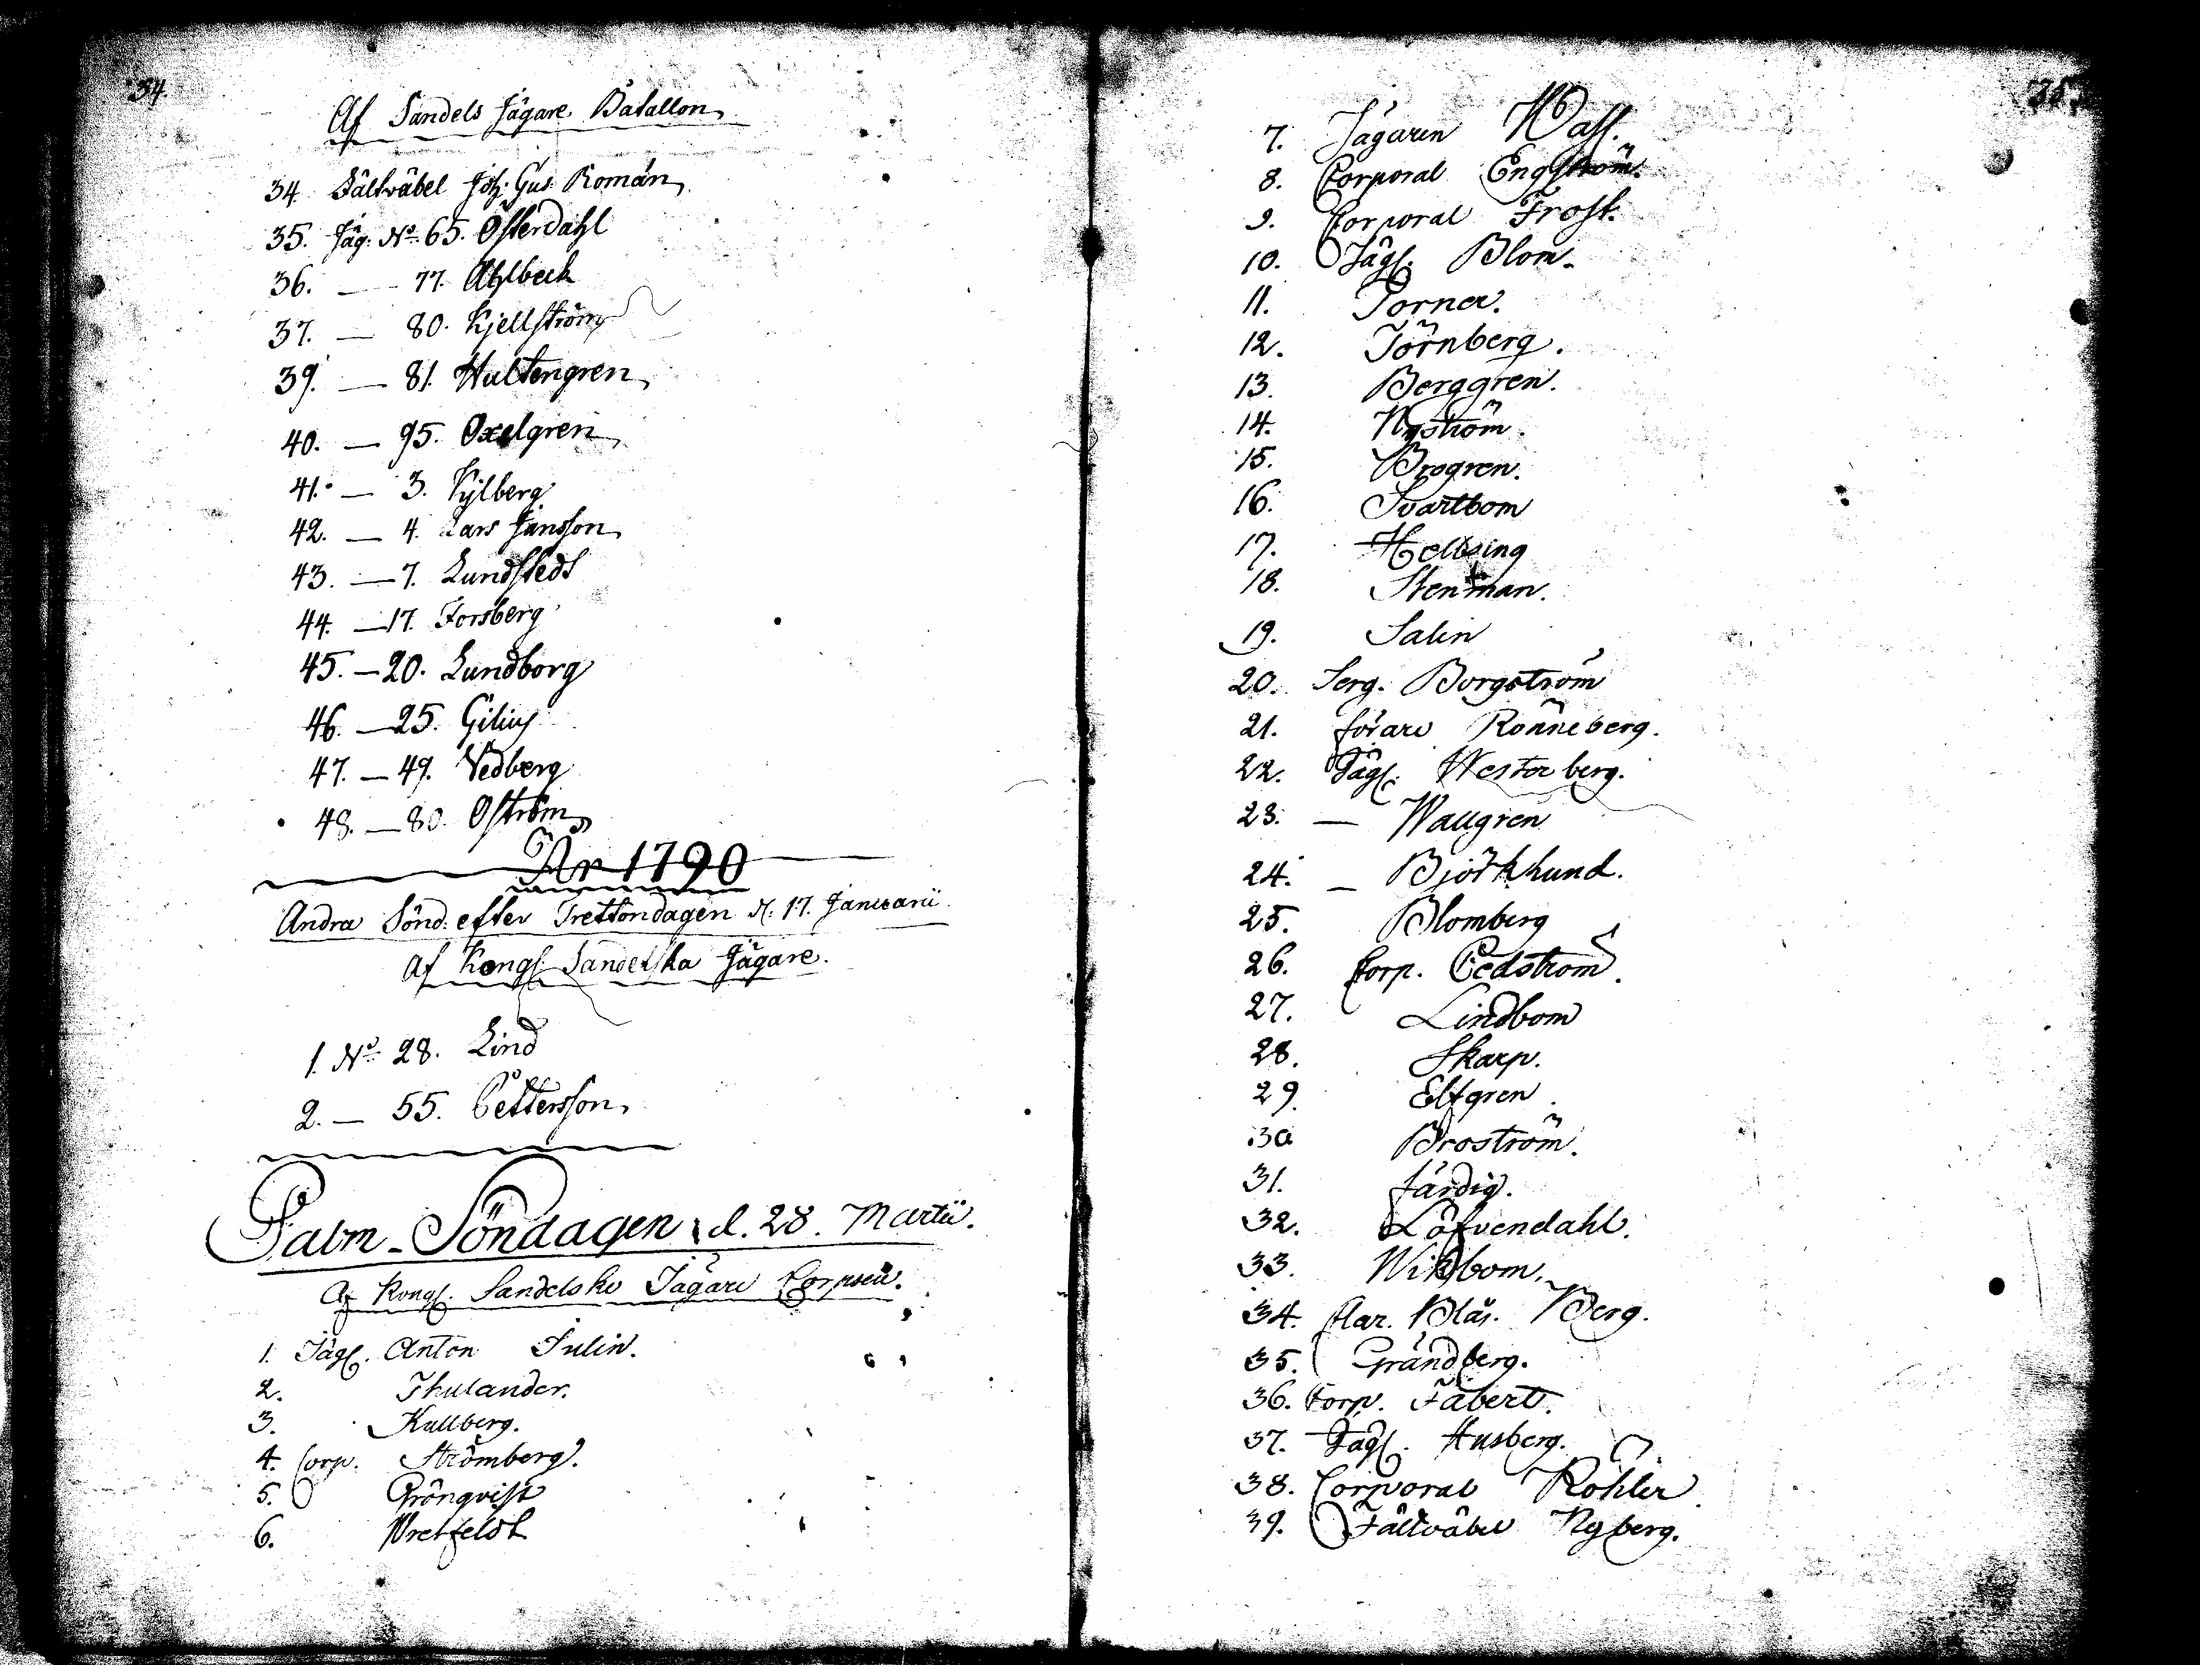 34.
Af Sandels Jägare Batallon
34. Fältväbel Joh: Gus: Román
35. Jäg: No. 65. Österdahl
36. — 77. Ahlbeck
37. — 80. Kjellström
39. — 81. Hultengren
40. — 95. Oxelgren
41. — 3. Kylberg
42. — 4. Lars Jansson
43. — 7. Lundstedt
44. — 17. Forsberg
45. — 20. Lundborg
46. — 25. Gilius
47. — 49. Vedberg
48. — 80. Öström
År 1790
Andra Sönd: efter Trettondagen d: 17. Januarii
Af Kongl: Sandelska Jägare.
1. No. 28. Lind
2. — 55. Pettersson
Palm-Söndagen d. 28. Martii.
Af Kongl. Sandelska Jägare Corpsen.
1. Jägl. Anton Julin.
2. Thulander.
3. Kullberg.
4. Corp. Strömberg.
5. Grönqvist
6. Wretfeldt
35.
7. Jägaren Wass.
8. Corporal Engström.
9. Corporal Frost.
10. Jägl. Blom.
11. Torner.
12. Törnberg.
13. Berggren.
14. Nyström.
15. Brogren.
16. Svartbom
17. Helbsing
18. Stenman.
19. Salin
20. Serg. Borgström
21. förare Rönneberg.
22. Jägl. Westerberg.
23. — Wallgren
24. — Björkhund.
25. Blomberg
26. Corp. Cedström.
27. Lindbom
28. Skarp.
29. Elfgren.
30 Broström.
31. färdig.
32. Löfvendahl.
33. Wikbom.
34. Clar. Blås. Berg.
35. Grandberg.
36. Corp. Fabert.
37. Jägl. Husberg.
38. Corporal Köhler.
39. Fältväbel Nyberg.